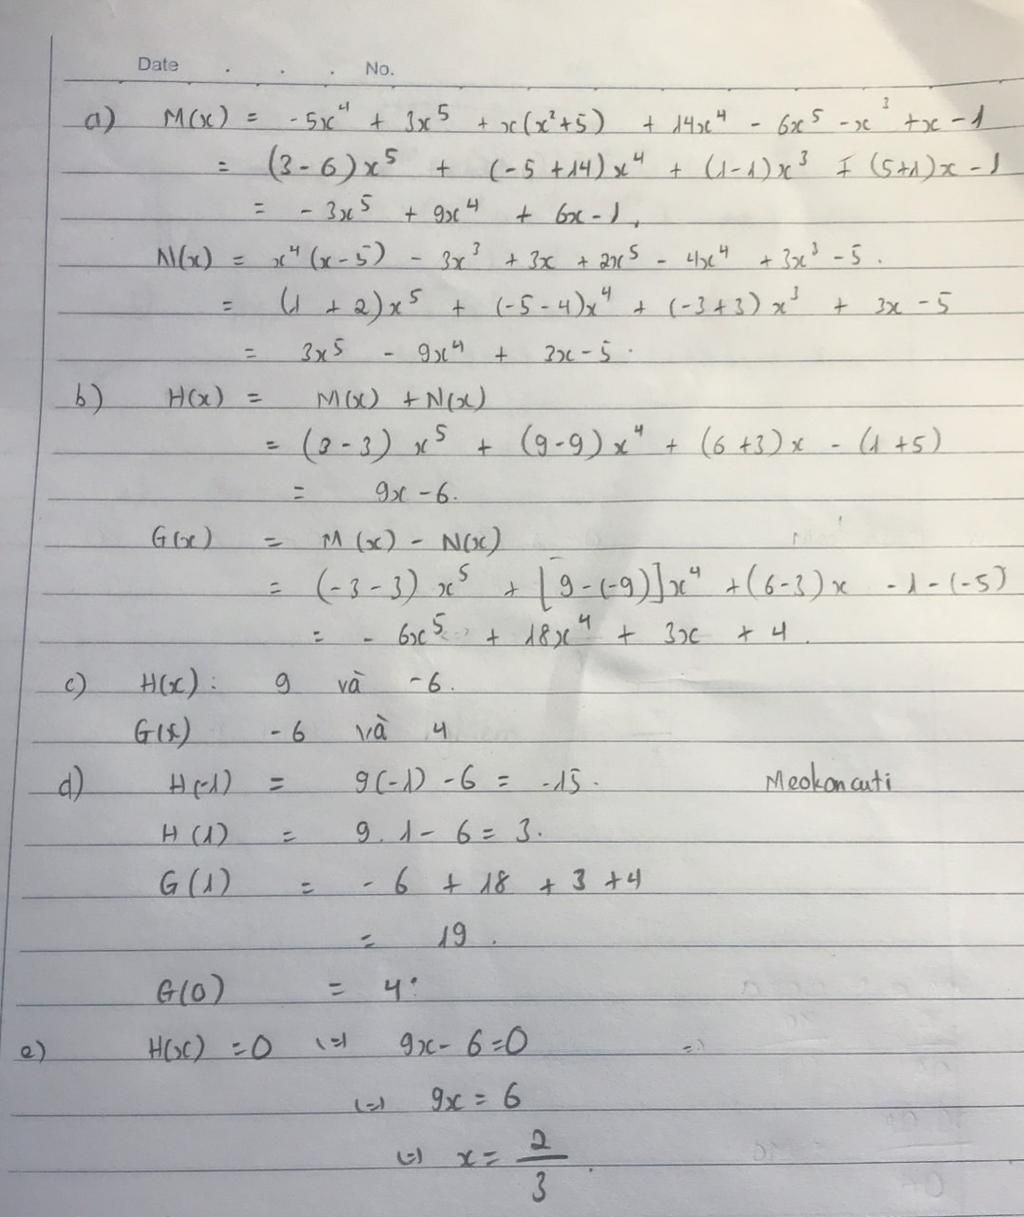 Date . . . No.
a) M(x) = -5x⁴ + 3x⁵ + x(x²+5) + 14x⁴ - 6x⁵ - x³ + x - 1
= (3-6)x⁵ + (-5+14)x⁴ + (1-1)x³ + (5+1)x - 1
= -3x⁵ + 9x⁴ + 6x - 1,
N(x) = x⁴(x-5) - 3x³ + 3x + 2x⁵ - 4x⁴ + 3x³ - 5.
= (1 + 2)x⁵ + (-5-4)x⁴ + (-3+3)x³ + 3x - 5
= 3x⁵ - 9x⁴ + 3x - 5.
b) H(x) = M(x) + N(x)
= (3-3)x⁵ + (9-9)x⁴ + (6+3)x - (1+5)
= 9x - 6.
G(x) = M(x) - N(x)
= (-3-3)x⁵ + [9-(-9)]x⁴ + (6-3)x - 1 - (-5)
= -6x⁵ + 18x⁴ + 3x + 4.
c) H(x): 9 và -6.
G(x) -6 và 4
d) H(-1) = 9(-1) - 6 = -15. Meokoncuti
H(1) = 9.1 - 6 = 3.
G(1) = -6 + 18 + 3 + 4
= 19.
G(0) = 4.
e) H(x) = 0 (=) 9x - 6 = 0
(=) 9x = 6
(=) x = 2/3.